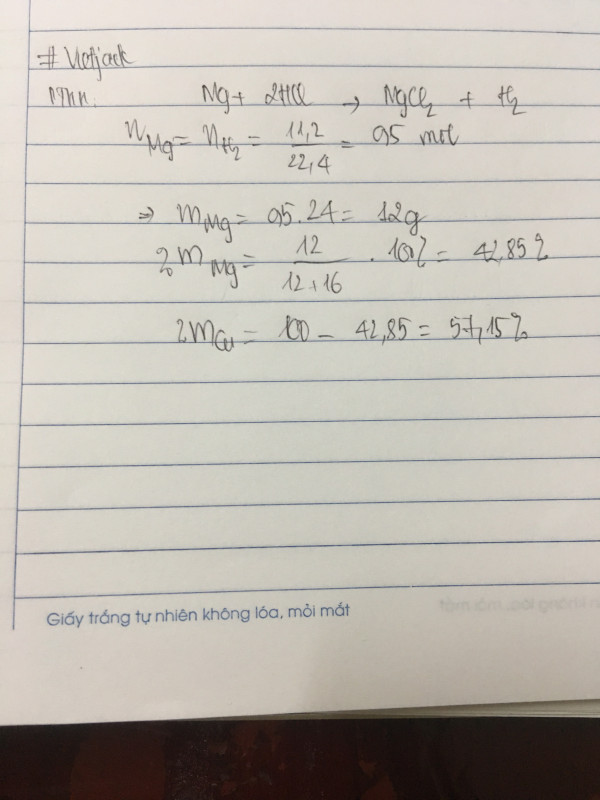 # Vietjack
PTHH: Mg + 2HCl → MgCl₂ + H₂
n Mg = n H₂ = 11,2 / 22,4 = 0,5 mol
=> m Mg = 0,5 . 24 = 12g
% m Mg = 12 / 12+16 . 100% = 42,85%
% m Cu = 100 - 42,85 = 57,15%
Giấy trắng tự nhiên không lóa, mỏi mắt